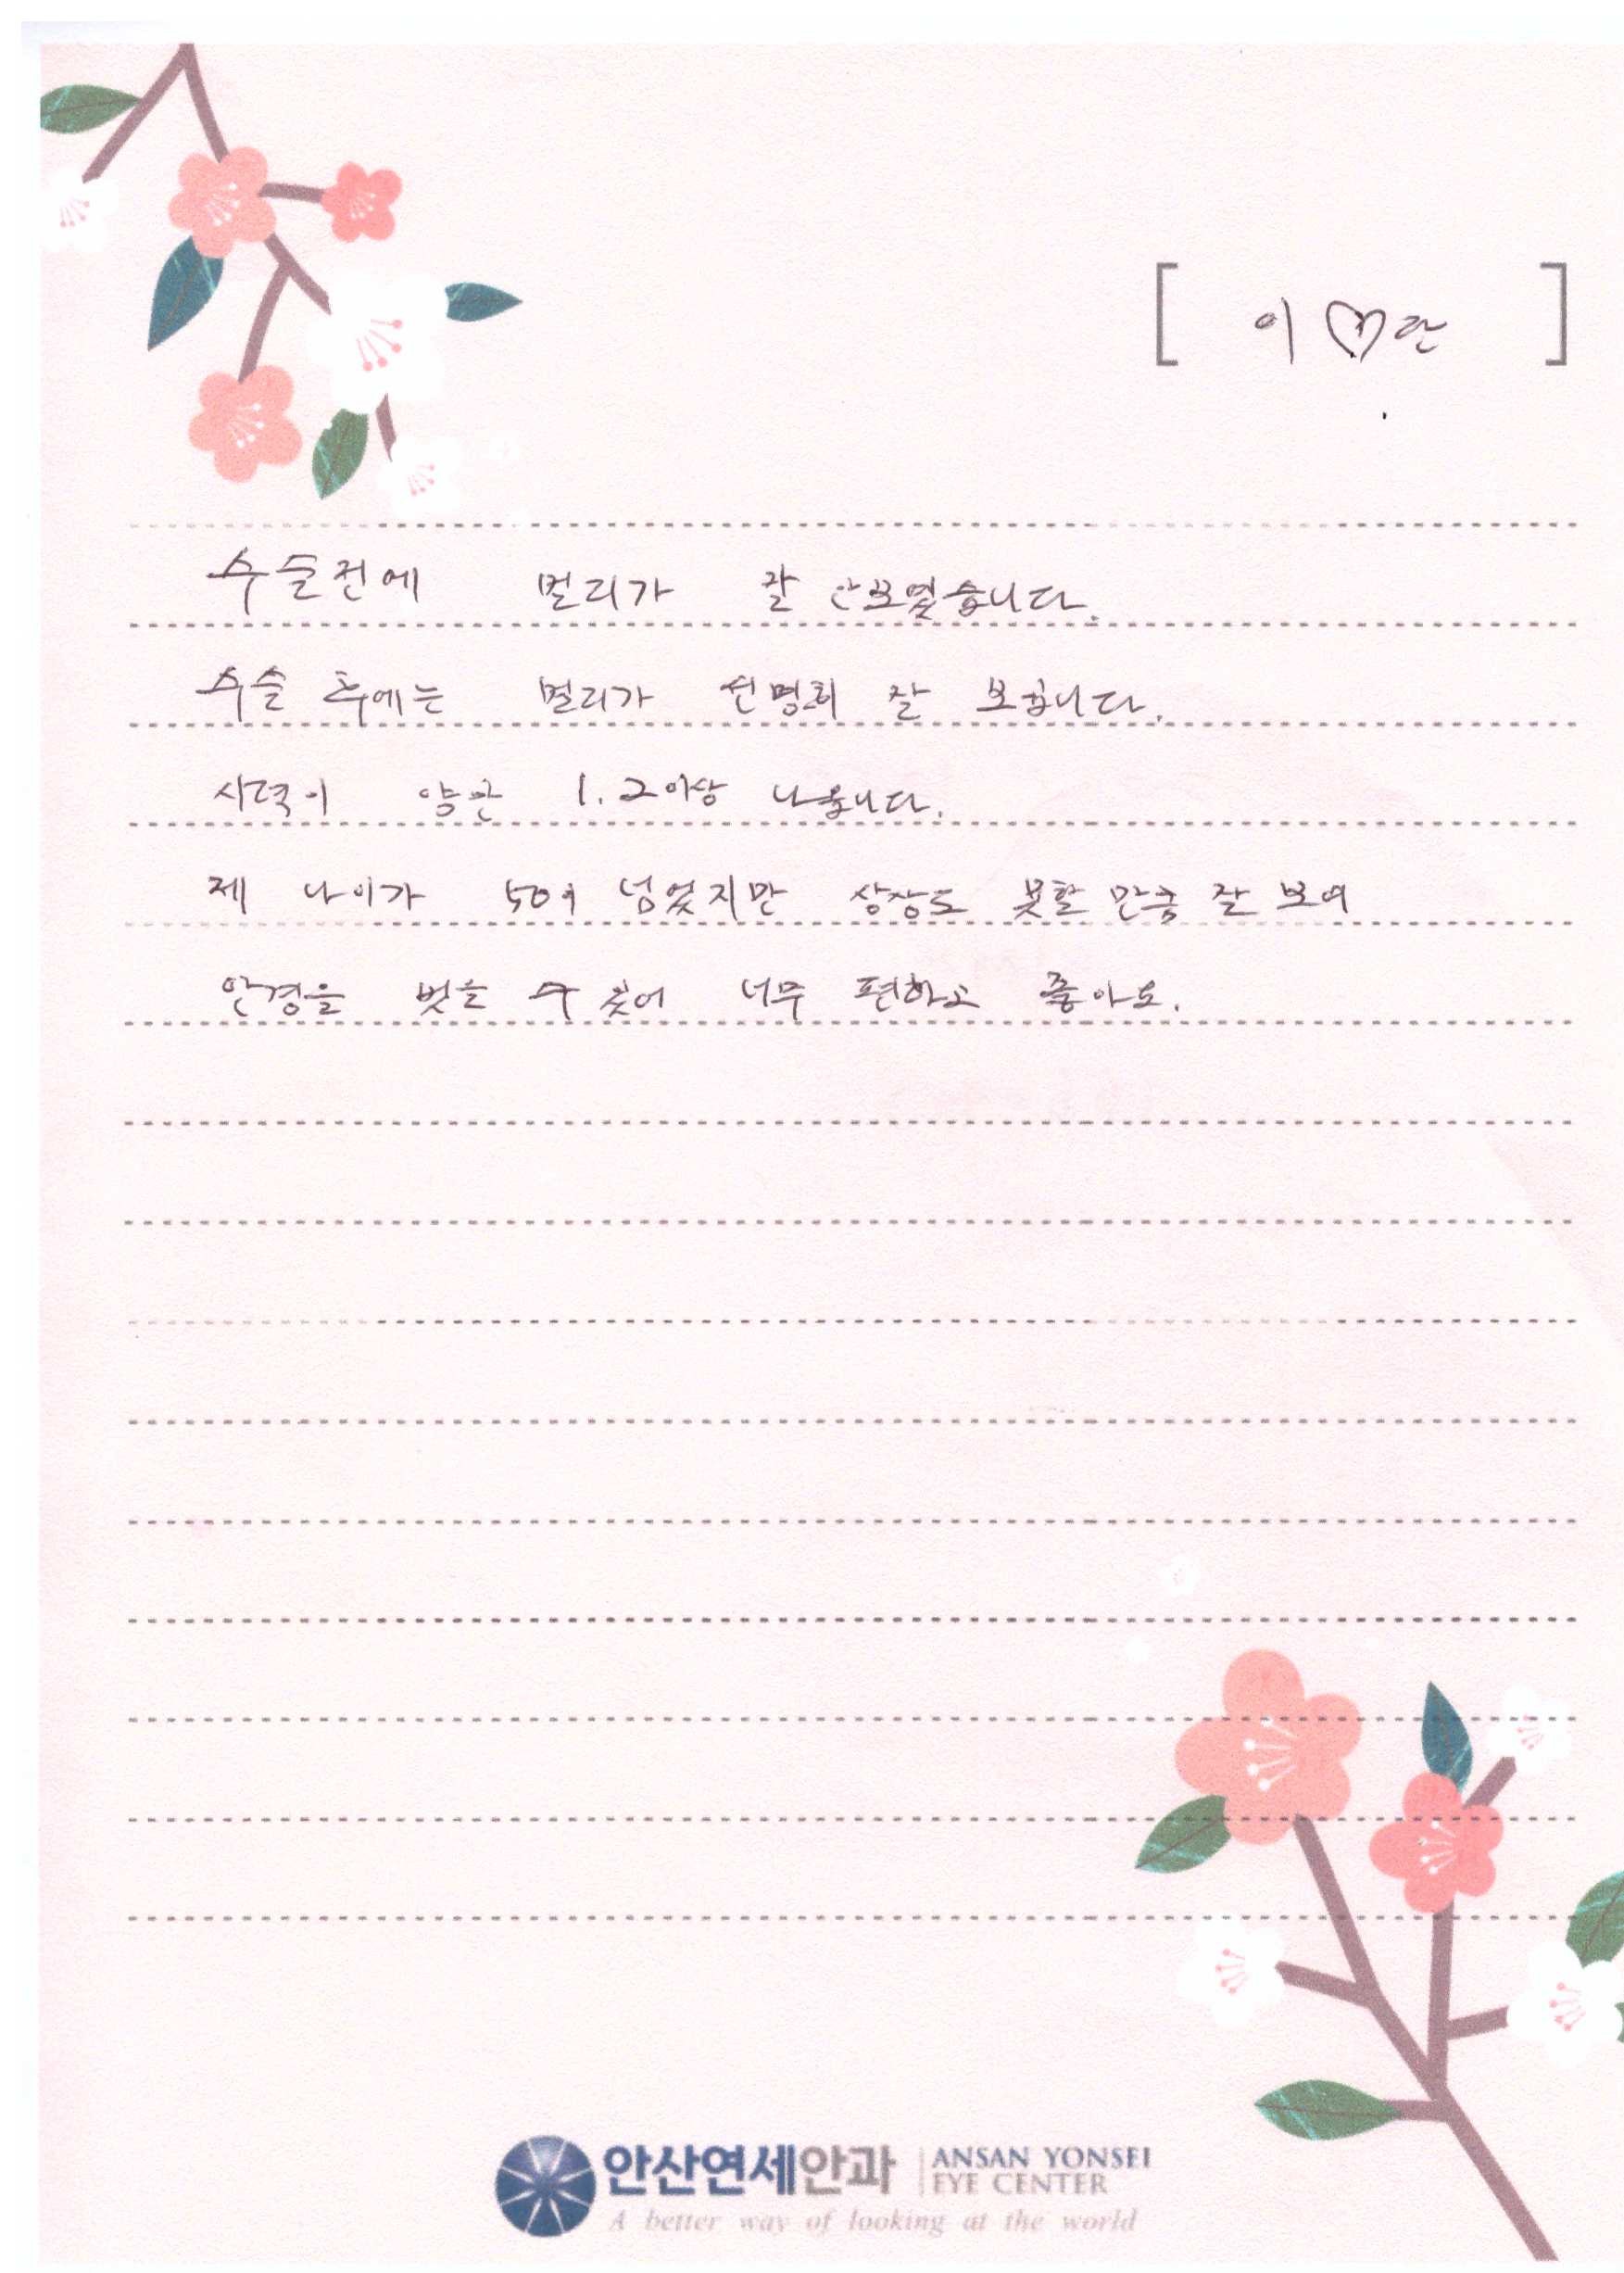 [ 이♡란 ]
수술전에 멀리가 잘 안보였습니다.
수술 후에는 멀리가 선명희 잘 보입니다.
시력이 양안 1.2이상 나옵니다.
제 나이가 50이 넘었지만 상상도 못할 만큼 잘 보여
안경을 벗을 수 있어 너무 편하고 좋아요.
안산연세안과 ANSAN YONSEI
EYE CENTER
A better way of looking at the world